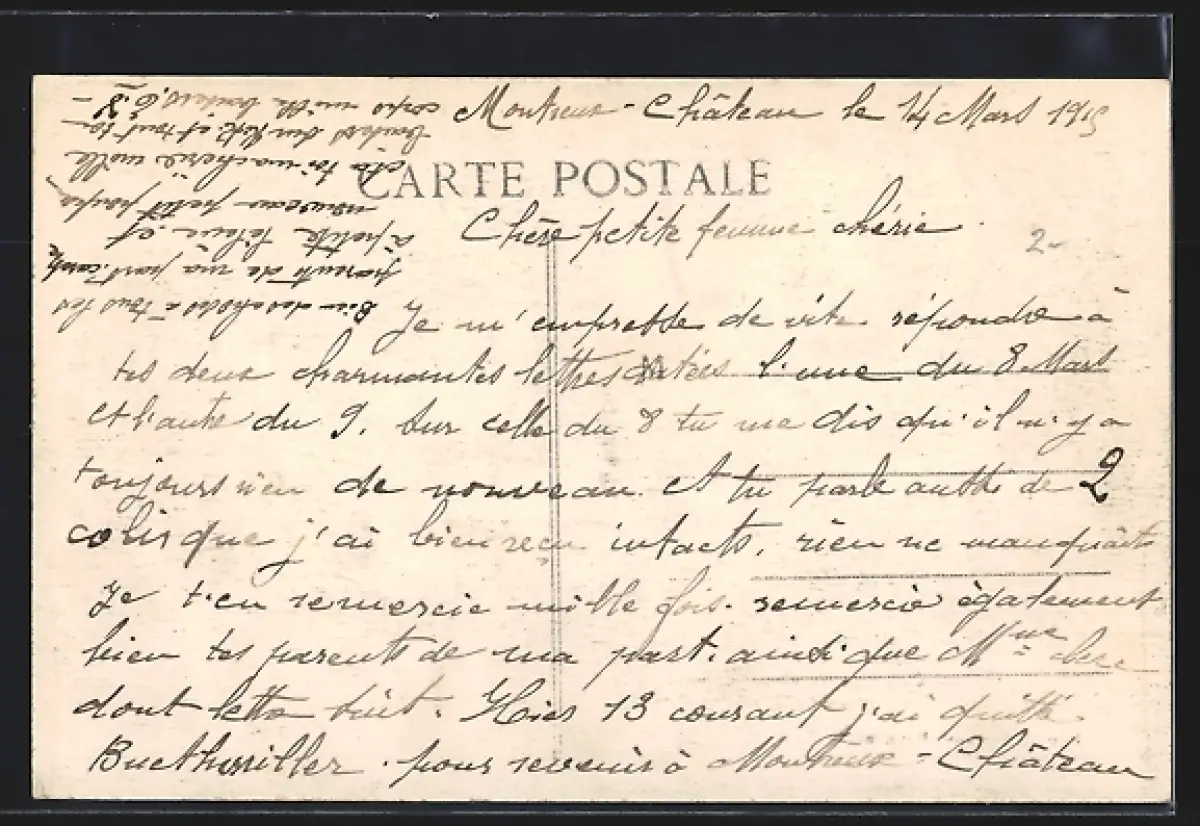 Montreux-Château le 14 Mars 1915
CARTE POSTALE
Chère petite femme chérie.
2-
Je m'empresse de vite répondre à
tes deux charmantes lettres datées l'une du 8 Mars
et l'autre du 9. Sur celle du 8 tu me dis qu'il n'y a
toujours rien de nouveau. Et tu parle aussi de 2
colis que j'ai bien reçu intacts, rien ne manquait
Je t'en remercie mille fois. remercie également
bien tes parents de ma part. ainsi que Mme
dont lettre suit. Hier 13 courant j'ai quitté
Buethwiller. pour revenir à Montreux-Château
Bien des choses à tous tes
parents de ma part.
à petite et
nouveau petit
toi ma chérie mille
baisers sur et tout ton
corps mille baisers.